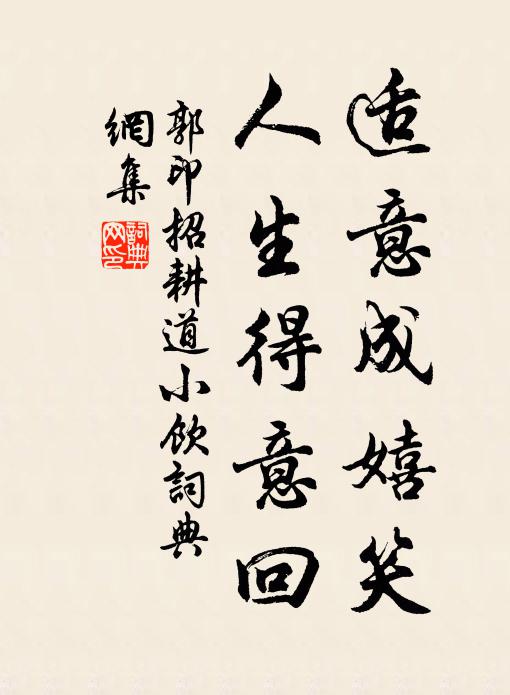 适意成嬉笑
人生得意回
郭印招耕道小飲詞典
網集
詞典網印